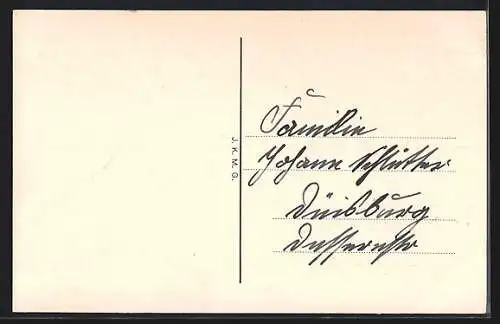 J. K. M. G.
Familie
Johann Schlütter
Duisburg